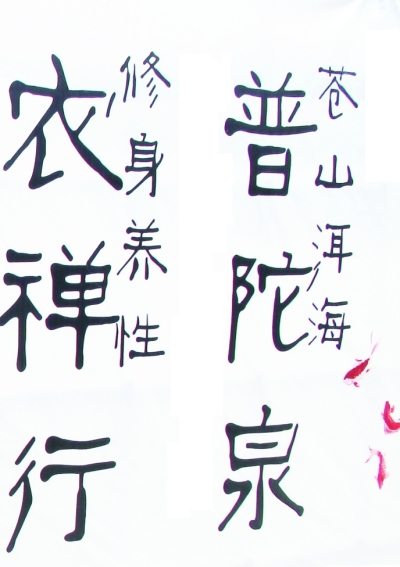 苍山洱海
普陀泉
修身养性
衣禅行